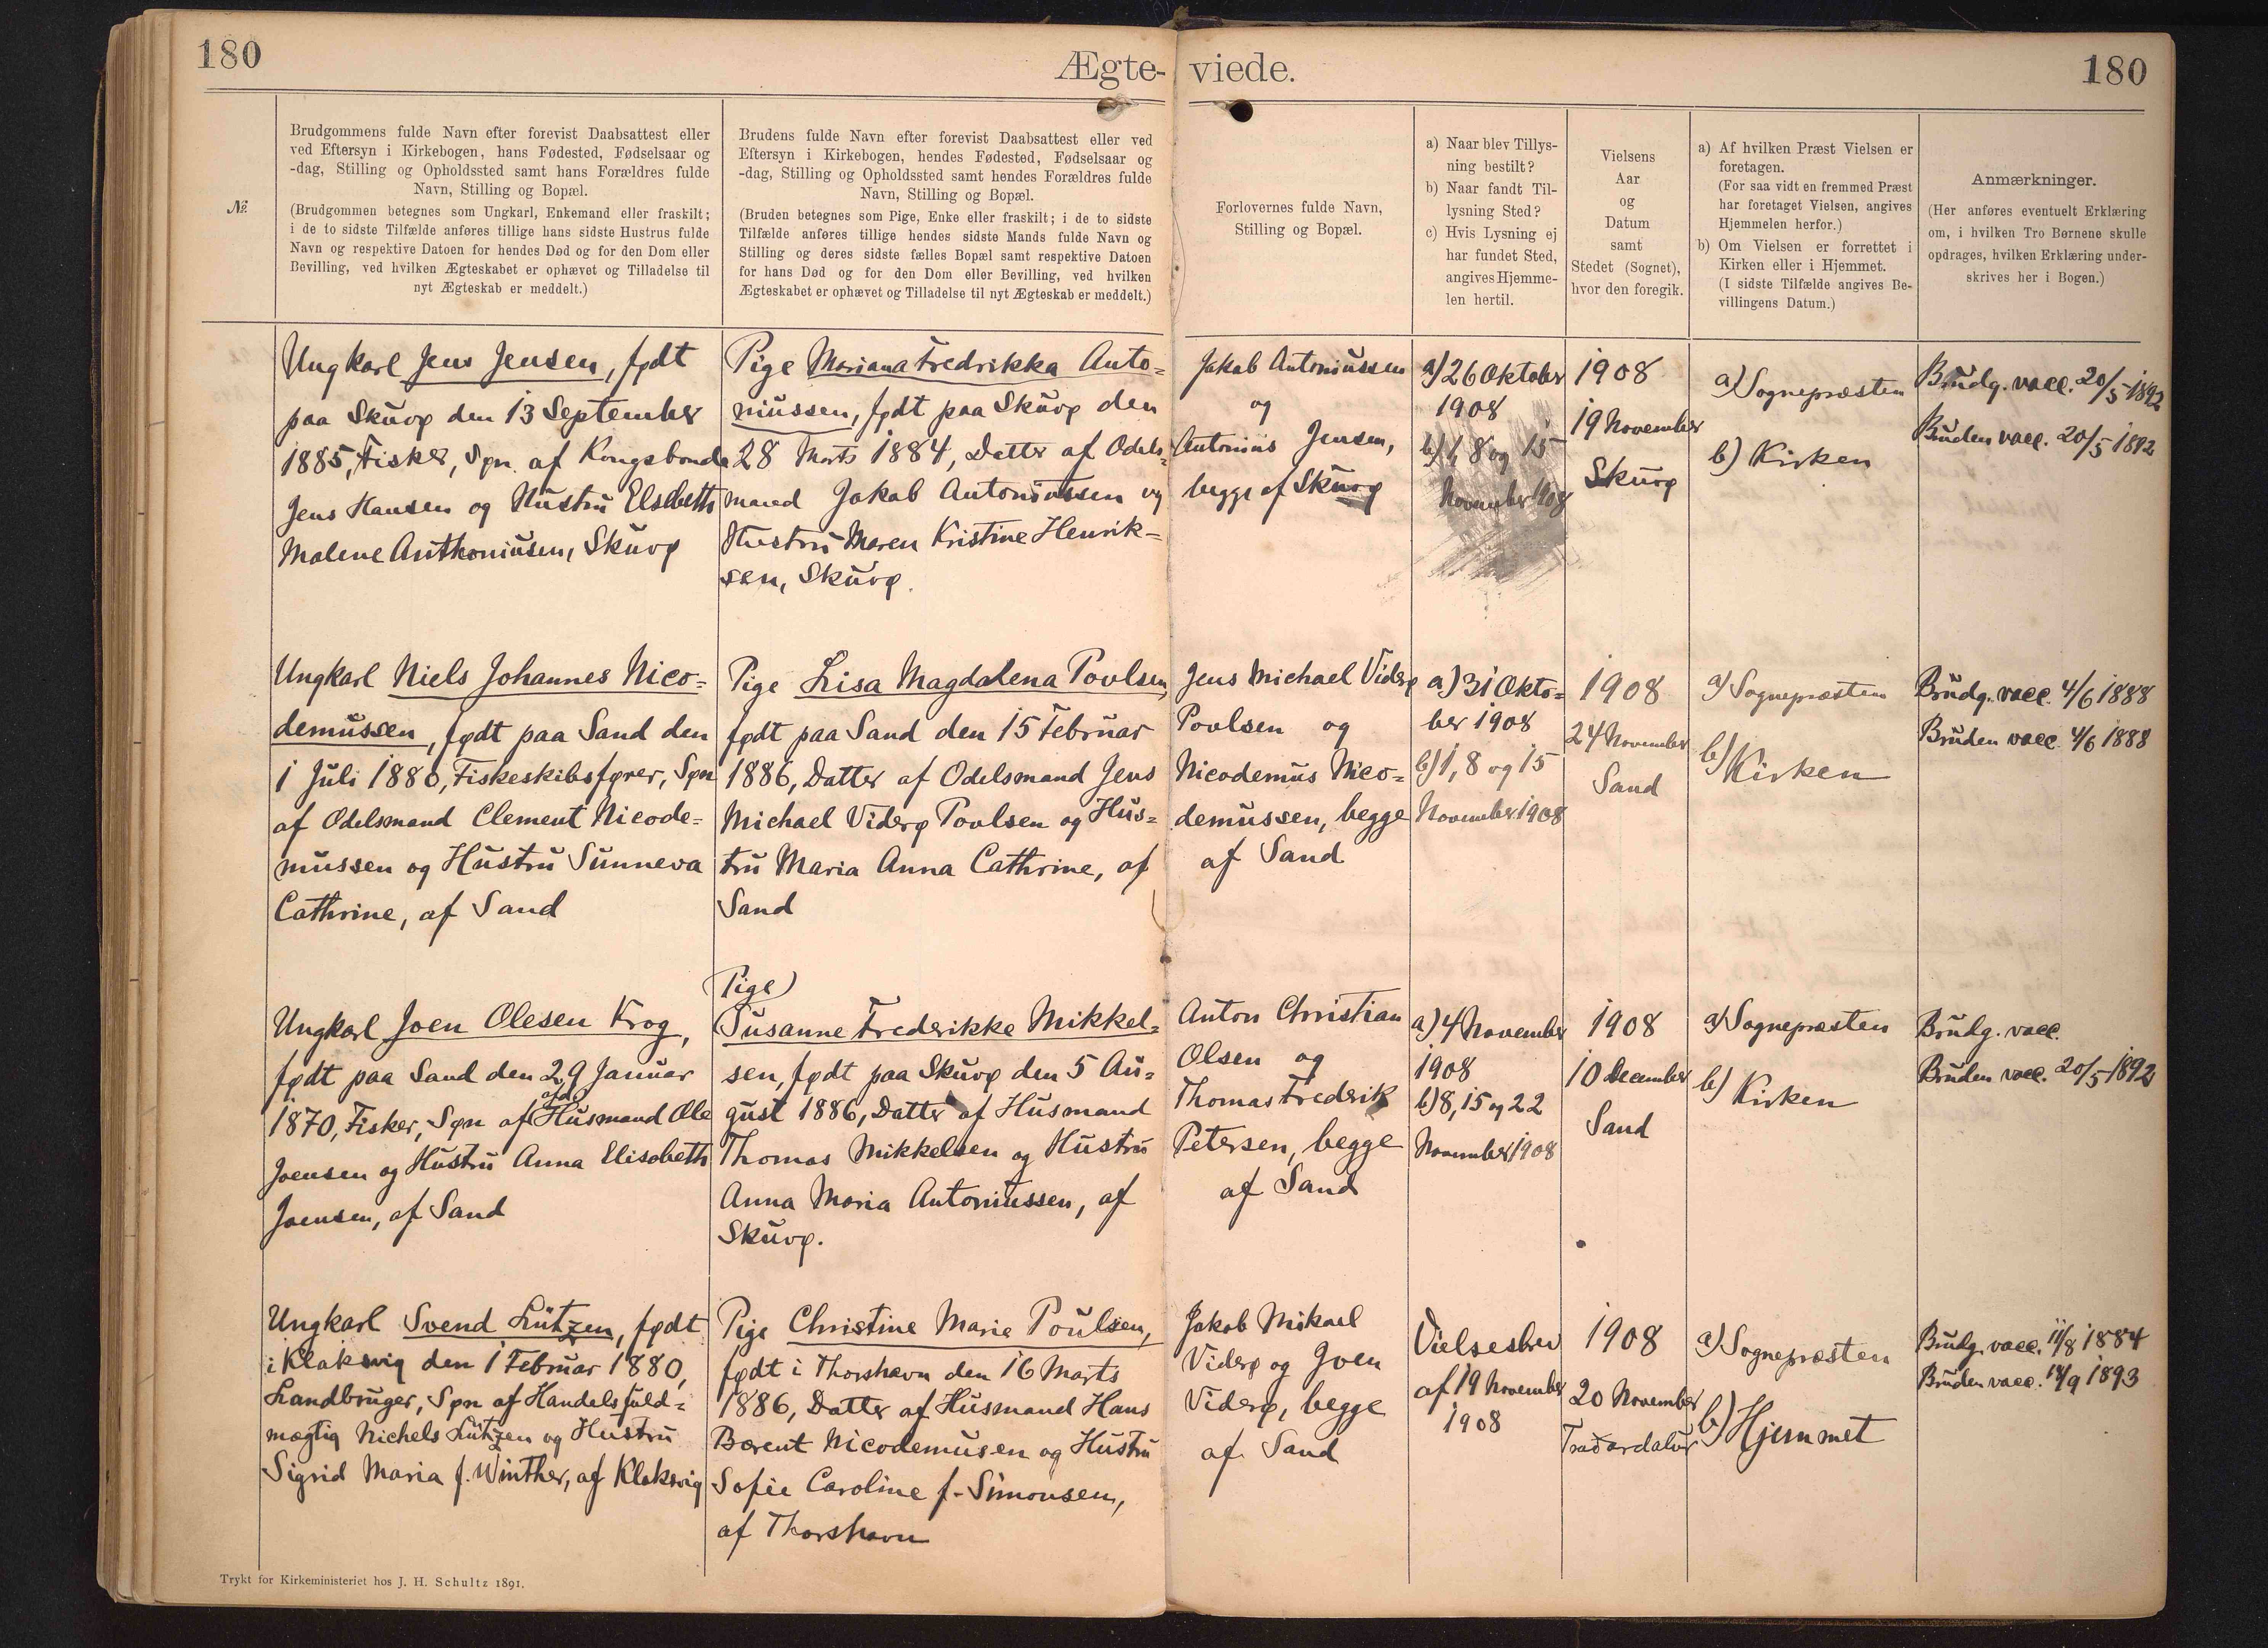 180
Ægte-
viede.
180
№
Brudgommens fulde Navn efter forevist Daabsattest eller
ved Eftersyn i Kirkebogen, hans Fødested, Fødselsaar og
-dag, Stilling og Opholdssted samt hans Forældres fulde
Navn, Stilling og Bopæl.
(Brudgommen betegnes som Ungkarl, Enkemand eller fraskilt;
i de to sidste Tilfælde anføres tillige hans sidste Hustrus fulde
Navn og respektive Datoen for hendes Død og for den Dom eller
Bevilling, ved hvilken Ægteskabet er ophævet og Tilladelse til
nyt Ægteskab er meddelt.)
Brudens fulde Navn efter forevist Daabsattest eller ved
Eftersyn i Kirkebogen, hendes Fødested, Fødselsaar og
-dag, Stilling og Opholdssted samt hendes Forældres fulde
Navn, Stilling og Bopæl.
(Bruden betegnes som Pige, Enke eller fraskilt; i de to sidste
Tilfælde anføres tillige hendes sidste Mands fulde Navn og
Stilling og deres sidste fælles Bopæl samt respektive Datoen
for hans Død og for den Dom eller Bevilling, ved hvilken
Ægteskabet er ophævet og Tilladelse til nyt Ægteskab er meddelt.)
Forlovernes fulde Navn,
Stilling og Bopæl.
a) Naar blev Tillys-
ning bestilt?
b) Naar fandt Til-
lysning Sted?
c) Hvis Lysning ej
har fundet Sted,
angives Hjemme-
len hertil.
Vielsens
Aar
og
Datum
samt
Stedet (Sognet),
hvor den foregik.
a) Af hvilken Præst Vielsen er
foretagen.
(For saa vidt en fremmed Præst
har foretaget Vielsen, angives
Hjemmelen herfor.)
b) Om Vielsen er forrettet i
Kirken eller i Hjemmet.
(I sidste Tilfælde angives Be-
villingens Datum.)
Anmærkninger.
(Her anføres eventuelt Erklæring
om, i hvilken Tro Børnene skulle
opdrages, hvilken Erklæring under-
skrives her i Bogen.)
Ungkarl Jens Jensen, født
paa Skuvø den 13 September
1885, Fisker, Søn af Kongsbonde
Jens Hansen og Hustru Elsebeth
Malene Anthoniusen, Skuvø
Pige Mariana Fredrikka Anto=
niussen, født paa Skuvø den
28 Marts 1884, Datter af Odels=
mand Jakob Antoniussen og
Hustru Maren Kristine Henrik=
sen, Skuvø.
Jakob Antoniussen
og
Antonius Jensen,
begge af Skuvø
a) 26 Oktober
1908
b) 1, 8 og 15
November 1908
1908
19 November
Skuvø
a) Sognepræsten
b) Kirken
Brudg. vacc. 20/5 1892
Bruden vacc. 20/5 1892
Ungkarl Niels Johannes Nico=
demussen, født paa Sand den
1 Juli 1880, Fiskeskibsfører, Søn
af Odelsmand Clement Nicode=
mussen og Hustru Sunneva
Cathrine, af Sand
Pige Lisa Magdalena Poulsen,
født paa Sand den 15 Februar
1886, Datter af Odelsmand Jens
Michael Viderø Poulsen og Hus=
tru Maria Anna Cathrine, af
Sand
Jens Michael Viderø
Poulsen og
Nicodemus Nico=
demussen, begge
af Sand
a) 31 Okto=
ber 1908
b) 1, 8 og 15
November 1908
1908
24 November
Sand
a) Sognepræsten
b) Kirken
Brudg. vacc. 4/6 1888
Bruden vacc. 4/6 1888
Ungkarl Joen Olesen Krog,
født paa Sand den 29 Januar
1870, Fisker, Søn af afdø Husmand Ole
Joensen og Hustru Anna Elisabeth
Joensen, af Sand
Pige
Susanne Frederikke Mikkel=
sen, født paa Skuvø den 5 Au=
gust 1886, Datter af Husmand
Thomas Mikkelsen og Hustru
Anna Maria Antoniussen, af
Skuvø.
Anton Christian
Olsen og
Thomas Frederik
Petersen, begge
af Sand
a) 4 November
1908
b) 8, 15 og 22
November 1908
1908
10 December
Sand
a) Sognepræsten
b) Kirken
Brudg. vacc.
Bruden vacc. 20/5 1892
Ungkarl Svend Lützen, født
i Klaksvig den 1 Februar 1880,
Landbruger, Søn af Handelsfuld=
mægtig Nichels Lützen og Hustru
Sigrid Maria f. Winther, af Klaksvig
Pige Christine Marie Poulsen,
født i Thorshavn den 16 Marts
1886, Datter af Husmand Hans
Berent Nicodemusen og Hustru
Sofie Caroline f. Simonsen,
af Thorshavn
Jakob Mikael
Viderø og Joen
Viderø, begge
af Sand
Vielsesbrev
af 19 November
1908
1908
20 November
Traðardalur
a) Sognepræsten
b) Hjemmet
Brudg. vacc. 11/8 1884
Bruden vacc. 14/9 1893
Trykt for Kirkeministeriet hos J. H. Schultz 1891.